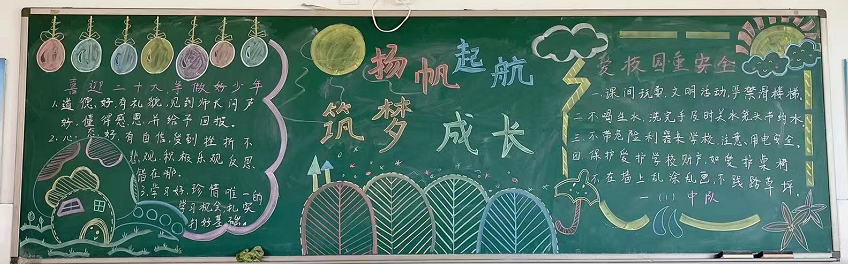 喜迎二十大,争做好少年
1.道德好,有礼貌,见到师长问声
好,懂得感恩,并给予回报。
2.心态好,有自信,受到挫折不
悲观,积极乐观反思
错在哪。
3.学习好,珍惜唯一的
学习机会,扎实
打好基础。
扬帆起航
筑梦成长
爱校园重安全
一.课间玩耍文明活动,严禁滑楼梯,
二.不喝生水,洗完手及时关水龙头节约水
三.不带危险利器来学校,注意用电安全,
四.保护爱护学校财产,如爱护桌椅
不在墙上乱涂乱画,不践踏草坪,
一(1)中队